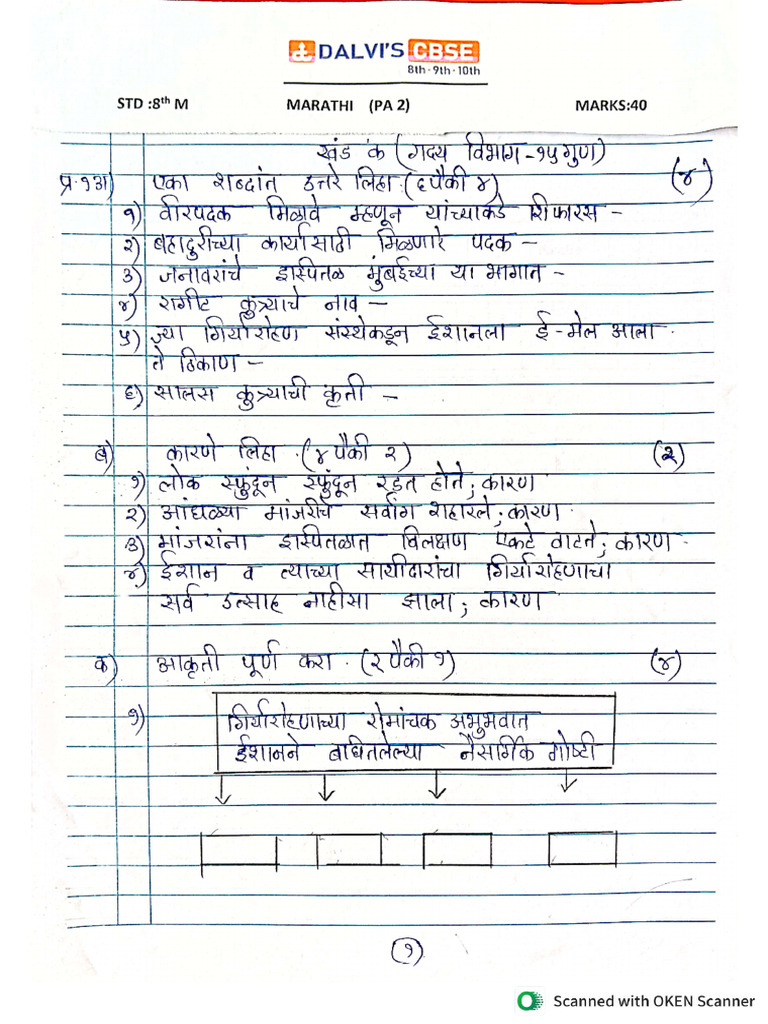 DALVI'S CBSE
8th-9th-10th
STD :8th M MARATHI (PA 2) MARKS:40
खंड क (गद्य विभाग-१५ गुण)
प्र.१अ) एका शब्दांत उत्तरे लिहा. (६ पैकी ४) (४)
१) वीरपदक मिळावे म्हणून यांच्याकडे शिफारस -
२) बहादुरीच्या कार्यासाठी मिळणारे पदक -
३) जनावरांचे इस्पितळ मुंबईच्या या भागात -
४) रागीट कुत्र्याचे नाव -
५) ज्या गिर्यारोहण संस्थेकडून ईशानला ई-मेल आला
ते ठिकाण -
६) सालस कुत्र्याची कृती -
ब) कारणे लिहा. (४ पैकी २) (२)
१) लोक स्फुंदून स्फुंदून रडत होते; कारण
२) आंधळ्या मांजरीचे सर्वांग शहारले; कारण
३) मांजरांना इस्पितळात विलक्षण एकटे वाटते; कारण
४) ईशान व त्याच्या साथीदारांचा गिर्यारोहणाचा
सर्व उत्साह नाहीसा झाला; कारण
क) आकृती पूर्ण करा. (२ पैकी १) (४)
१) गिर्यारोहणाच्या रोमांचक अभुभवात
ईशानने बघितलेल्या नैसर्गिक गोष्टी
(१)
Scanned with OKEN Scanner